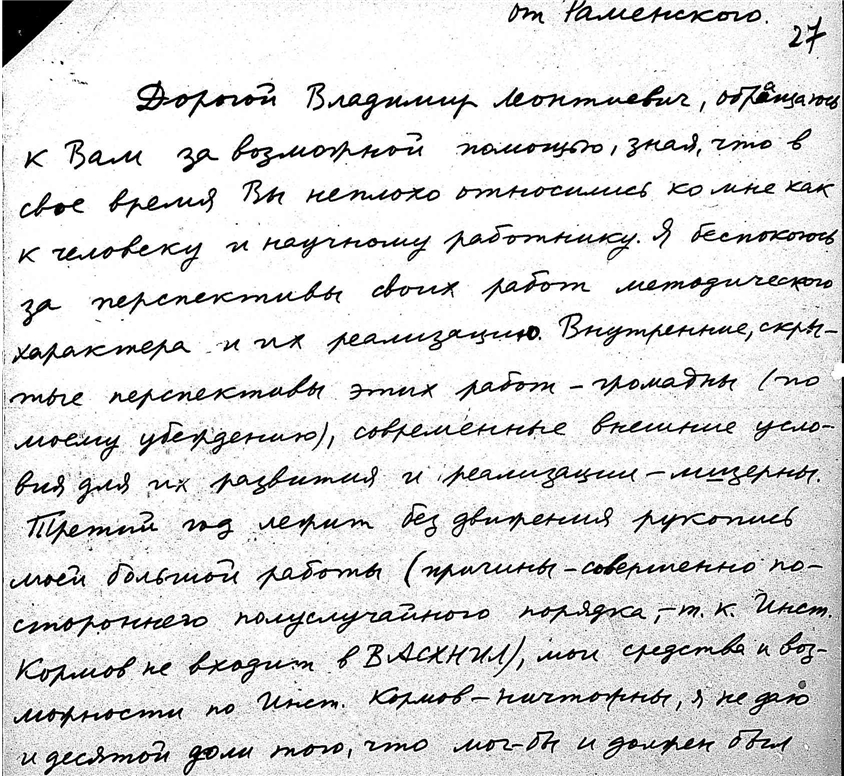 от Раменского.
27
Дорогой Владимир Леонтиевич, обращаюсь
к Вам за возможной помощью, зная, что в
свое время Вы неплохо относились ко мне как
к человеку и научному работнику. Я беспокоюсь
за перспективы своих работ методического
характера и их реализацию. Внутренние, скры-
тые перспективы этих работ – громадны (по
моему убеждению), современные внешние усло-
вия для их развития и реализации – мизерны.
Третий год лежит без движения рукопись
моей большой работы (причины – совершенно по-
стороннего полуслучайного порядка, – т. к. Инст.
Кормов не входит в ВАСХНИЛ), мои средства и воз-
можности по Инст. Кормов – ничтожны, я не даю
и десятой доли того, что мог-бы и должен был